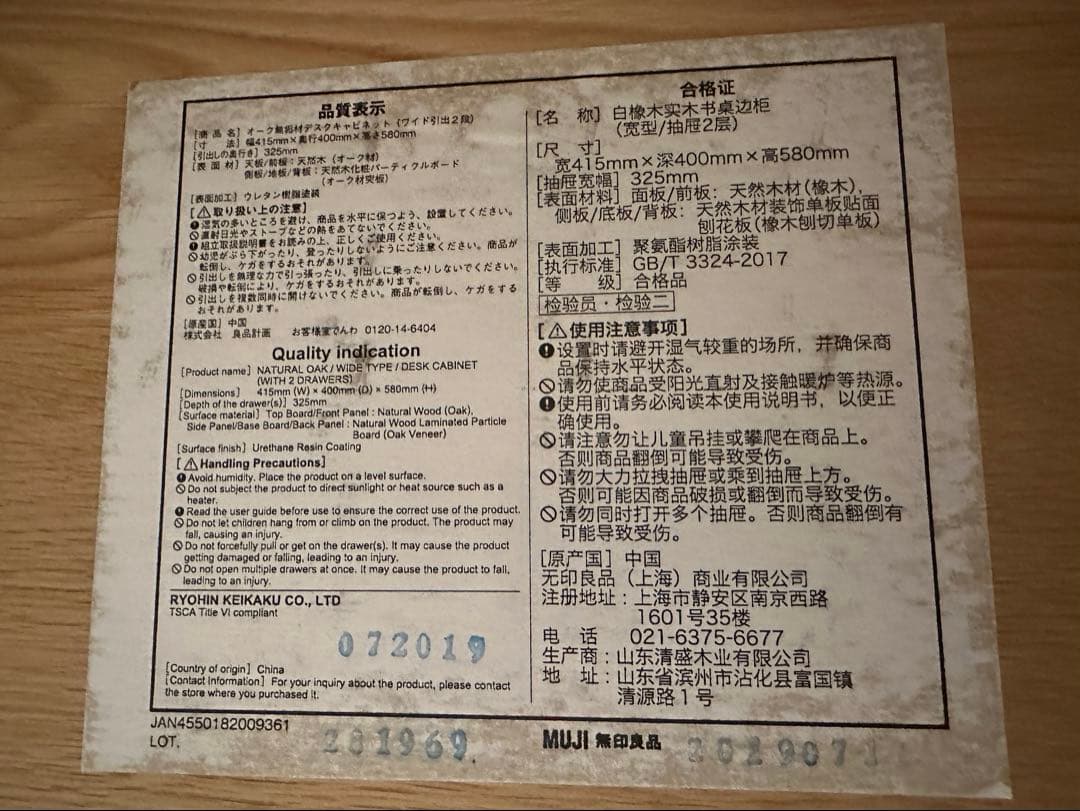 品質表示
[商 品 名] オーク無垢材デスクキャビネット (ワイド引出2段)
[寸 法] 幅415mm×奥行400mm×高さ580mm
[引出しの奥行き] 325mm
[表 面 材] 天板/前板:天然木(オーク材)
側板/地板/背板:天然木化粧パーティクルボード
(オーク材突板)
[表面加工] ウレタン樹脂塗装
[⚠取り扱い上の注意]
湿気の多いところを避け、商品を水平に保つよう、設置してください。
直射日光やストーブなどの熱をあてないでください。
組立取扱説明書をお読みの上、正しくご使用ください。
幼児がぶら下がったり、登ったりしないようにご注意ください。商品が
転倒し、ケガをするおそれがあります。
引出しを無理な力で引っ張ったり、引出しに乗ったりしないでください。
破損や転倒により、ケガをするおそれがあります。
引出しを複数同時に開けないでください。商品が転倒し、ケガをする
おそれがあります。
[原産国] 中国
株式会社 良品計画 お客様室でんわ 0120-14-6404
Quality indication
[Product name] NATURAL OAK / WIDE TYPE / DESK CABINET
(WITH 2 DRAWERS)
[Dimensions] 415mm (W) × 400mm (D) × 580mm (H)
[Depth of the drawer(s)] 325mm
[Surface material] Top Board/Front Panel : Natural Wood (Oak),
Side Panel/Base Board/Back Panel : Natural Wood Laminated Particle
Board (Oak Veneer)
[Surface finish] Urethane Resin Coating
[⚠Handling Precautions]
Avoid humidity. Place the product on a level surface.
Do not subject the product to direct sunlight or heat source such as a
heater.
Read the user guide before use to ensure the correct use of the product.
Do not let children hang from or climb on the product. The product may
fall, causing an injury.
Do not forcefully pull or get on the drawer(s). It may cause the product
getting damaged or falling, leading to an injury.
Do not open multiple drawers at once. It may cause the product to fall,
leading to an injury.
RYOHIN KEIKAKU CO., LTD
TSCA Title VI compliant
072019
[Country of origin] China
[Contact Information] For your inquiry about the product, please contact
the store where you purchased it.
合格证
[名 称] 白橡木实木书桌边柜
(宽型/抽屉2层)
[尺 寸]
宽415mm×深400mm×高580mm
[抽屉宽幅] 325mm
[表面材料] 面板/前板:天然木材(橡木),
侧板/底板/背板:天然木材装饰单板贴面
刨花板(橡木刨切单板)
[表面加工] 聚氨酯树脂涂装
[执行标准] GB/T 3324-2017
[等 级] 合格品
检验员・检验二
[⚠使用注意事项]
设置时请避开湿气较重的场所,并确保商
品保持水平状态。
请勿使商品受阳光直射及接触暖炉等热源。
使用前请务必阅读本使用说明书,以便正
确使用。
请注意勿让儿童吊挂或攀爬在商品上。
否则商品翻倒可能导致受伤。
请勿大力拉拽抽屉或乘到抽屉上方。
否则可能因商品破损或翻倒而导致受伤。
请勿同时打开多个抽屉。否则商品翻倒有
可能导致受伤。
[原产国] 中国
无印良品(上海)商业有限公司
注册地址:上海市静安区南京西路
1601号35楼
电 话 021-6375-6677
生产商:山东清盛木业有限公司
地 址:山东省滨州市沾化县富国镇
清源路1号
JAN4550182009361
LOT. 281969
MUJI 無印良品